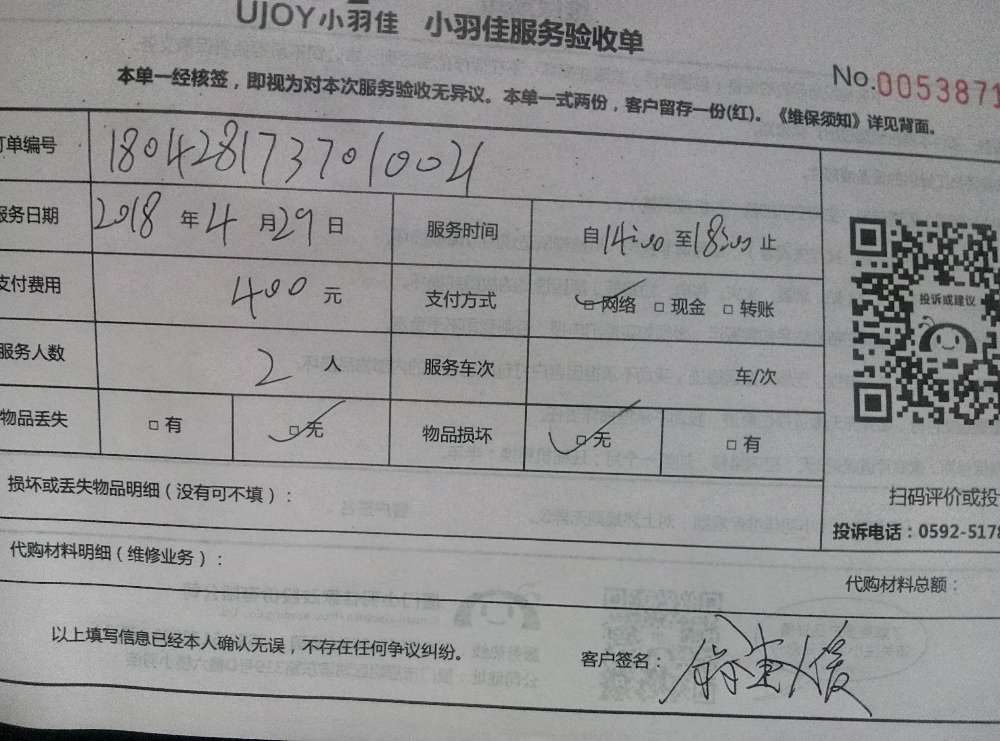 UJOY小羽佳 小羽佳服务验收单
No.0053871
本单一经核签，即视为对本次服务验收无异议。本单一式两份，客户留存一份(红)。《维保须知》详见背面。
订单编号 180428173701002
服务日期 2018 年 4 月 29 日 服务时间 自 14:00 至 18:00 止
支付费用 400 元 支付方式 □网络 □现金 □转账
服务人数 2 人 服务车次 车/次
物品丢失 □有 □无 物品损坏 □无 □有
投诉或建议
损坏或丢失物品明细（没有可不填）：
扫码评价或投
投诉电话：0592-5178
代购材料明细（维修业务）：
代购材料总额：
以上填写信息已经本人确认无误，不存在任何争议纠纷。
客户签名：